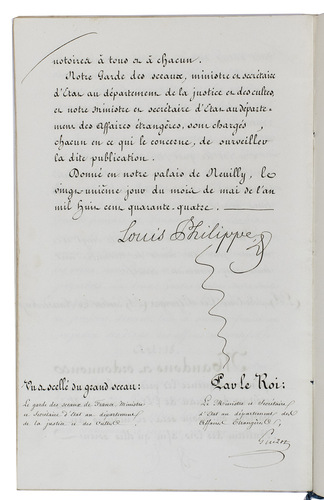 notoires à tous & à chacun.
Notre Garde des sceaux, ministre et secrétaire
d'Etat au département de la justice et des cultes,
et notre ministre et secrétaire d'Etat au départe-
ment des Affaires étrangères, sont chargés,
chacun en ce qui le concerne, de surveiller
la dite publication.
Donné en notre palais de Neuilly, le
vingt-unième jour du mois de mai de l'an
mil huit cent quarante-quatre.
Louis Philippe
Vu & scellé du grand sceau:
Le garde des sceaux de France, Ministre
et Secrétaire d'état au département
de la justice et des Cultes
Par le Roi:
Le Ministre et Secrétaire
d'Etat au département des
Affaires Etrangères
Guizot